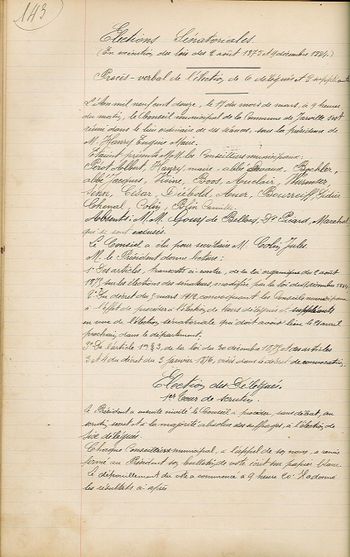 143
Elections Sénatoriales
(En exécution des lois des 2 août 1875 et 9 décembre 1884.)
Procès-verbal de l'élection de 6 délégués et 2 suppléants
L'An mil neuf cent douze, le 17 du mois de mars, à 9 heures
du matin, le Conseil municipal de la Commune de Jarville s'est
réuni dans le lieu ordinaire de ses séances, sous la présidence de
M. Henry Eugène Maire.
Etaient présents M.M. les Conseillers municipaux:
Perot Albert, abbé
abbé Jacques, Boos, Auclair,
César, Diebold, Bourreiff, Didier
Chenal, Colin, Camille.
Absents: M.M. Goury de Picard, Marchal
qui se sont excusés.
Le Conseil a élu pour secrétaire M. Colin Jules
M. le Président donne lecture:
1º Des articles, de la loi organique du 2 août
1875 sur les élections des sénateurs modifiée par la loi du 9 décembre 1884
2º Du décret du mars 1912 convoquant les Conseils municipaux
à l'effet de procéder à l'élection de leurs délégués et suppléants
en vue de l'élection sénatoriale qui doit avoir lieu le avril
prochain dans le département.
3º De l'article 1er § 3 de la loi du 30 décembre 1875 et des articles
3 et 4 du décret du 3 janvier 1876, visés dans le décret de convocation.
Election des Délégués
1er Tour de scrutin.
Le Président a ensuite invité le Conseil à procéder, sans débat, au
scrutin secret et à la majorité absolue des suffrages, à l'élection de
six délégués.
Chaque Conseiller municipal, à l'appel de son nom, a remis
fermé au Président son bulletin de vote écrit sur papier blanc.
Le dépouillement du vote a commencé à 9 heures 20. Il a donné
les résultats ci-après